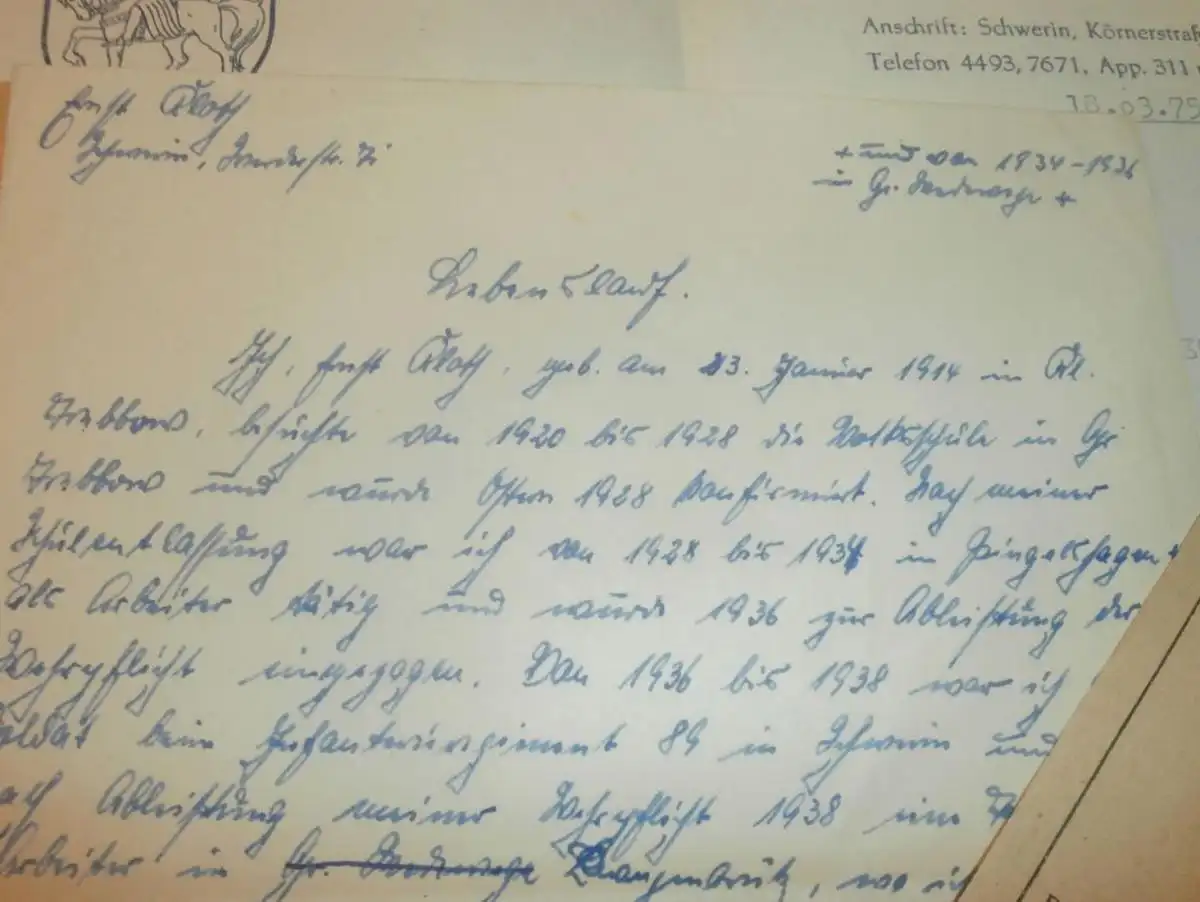 Anschrift: Schwerin, Körnerstraß
Telefon 4493, 7671, App. 311
18.03.75
Ernst Kloth
Schwerin, Werderstr. 7
+ und von 1934-1936
in Gr. Medewege +
Lebenslauf.
Ich, Ernst Kloth, geb. am 23. Januar 1914 in Kl.
Trebbow, besuchte von 1920 bis 1928 die Volksschule in Gr.
Trebbow und wurde Ostern 1928 konfirmiert. Nach meiner
Schulentlassung war ich von 1928 bis 1934 in Pingelshagen +
als Arbeiter tätig und wurde 1936 zur Ableistung der
Wehrpflicht eingezogen. Von 1936 bis 1938 war ich
oldat beim Infanterieregiment 89 in Schwerin und
ach Ableistung meiner Wehrpflicht 1938 im
Arbeiter in Gr. Medewege Langenbrütz, wo ich